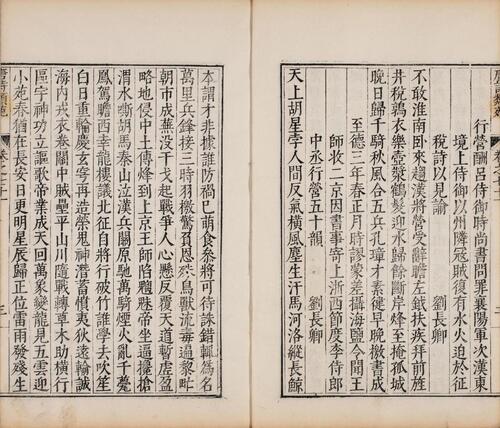 行營酬呂侍御時尚書問罪襄陽軍次漢東
境上侍御以州隣冦賊復有水火迫於征
稅詩以見諭 劉長卿
不敢淮南卧來趨漢將營受辭瞻左鉞扶疾拜前旌
井稅鶉衣樂壺漿鶴髮迎水歸餘斷岸烽至掩孤城
晚日歸千騎秋風合五兵孔璋才素健早晚檄書成
至德三年春正月時謬蒙差攝海鹽令聞王
師收二京因書事寄上浙西節度李侍郎
中丞行營五十韻 劉長卿
天上胡星孛人間反氣橫風塵生汗馬河洛縱長鯨
本謂才非據誰防禍已萌食參將可待誅錯輒為名
萬里兵鋒接三時羽檄驚負恩殊鳥獸流毒遍黎甿
朝市成蕪沒干戈起戰爭人心懸反覆天道暫虛盈
略地侵中土傳烽到上京王師陷魑魅帝坐逼欃搶
渭水嘶胡馬秦山泣漢兵關原馳萬騎煙火亂千甍
鳳駕瞻西幸龍樓議北征自將行破竹誰學去吹笙
白日重輪慶玄穹再造榮鬼神潛蓄憤夷狄遠輸誠
海內戎衣卷關中賊壘平山川隨戰轉草木助橫行
區宇神功立謳歌帝業成天回萬象變龍見五雲迎
小苑春猶在長安日更明星辰歸正位雷雨發殘生